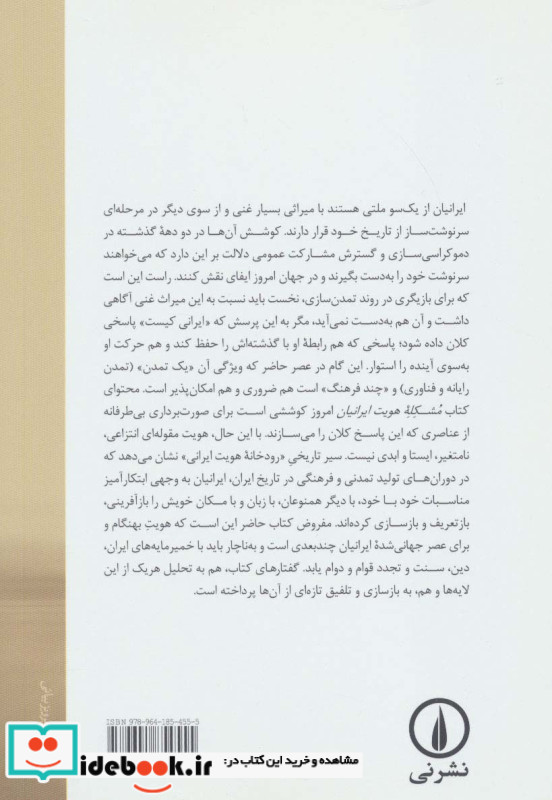 ایرانیان از یک‌سو ملتی هستند با میراثی بسیار غنی و از سوی دیگر در مرحله‌ای
سرنوشت‌ساز از تاریخ خود قرار دارند. کوشش آن‌ها در دو دههٔ گذشته در
دموکراسی‌سازی و گسترش مشارکت عمومی دلالت بر این دارد که می‌خواهند
سرنوشت خود را به‌دست بگیرند و در جهان امروز ایفای نقش کنند. راست این است
که برای بازیگری در روند تمدن‌سازی، نخست باید نسبت به این میراث غنی آگاهی
داشت و آن هم به‌دست نمی‌آید، مگر به این پرسش که «ایرانی کیست» پاسخی
کلان داده شود؛ پاسخی که هم رابطهٔ او با گذشته‌اش را حفظ کند و هم حرکت او
به‌سوی آینده را استوار. این گام در عصر حاضر که ویژگی آن «یک تمدن» (تمدن
رایانه و فناوری) و «چند فرهنگ» است هم ضروری و هم امکان‌پذیر است. محتوای
کتاب مُشکِلِهٔ هویت ایرانیان امروز کوششی است برای صورت‌برداری بی‌طرفانه
از عناصری که این پاسخ کلان را می‌سازند. با این حال، هویت مقوله‌ای انتزاعی،
نامتغیر، ایستا و ابدی نیست. سیر تاریخیِ «رودخانهٔ هویت ایرانی» نشان می‌دهد که
در دوران‌های تولید تمدنی و فرهنگی در تاریخ ایران، ایرانیان به وجهی ابتکارآمیز
مناسبات خود با خود، با دیگر همنوعان، با زبان و با مکان خویش را بازآفرینی،
بازتعریف و بازسازی کرده‌اند. مفروض کتاب حاضر این است که هویتِ بهنگام و
برای عصر جهانی‌شدهٔ ایرانیان چندبعدی است و به‌ناچار باید با خمیرمایه‌های ایران،
دین، سنت و تجدد قوام و دوام یابد. گفتارهای کتاب، هم به تحلیل هریک از این
لایه‌ها و هم، به بازسازی و تلفیق تازه‌ای از آن‌ها پرداخته است.
ISBN 978-964-185-455-5
نشرنی
مشاهده و خرید این کتاب در:
idebook.ir